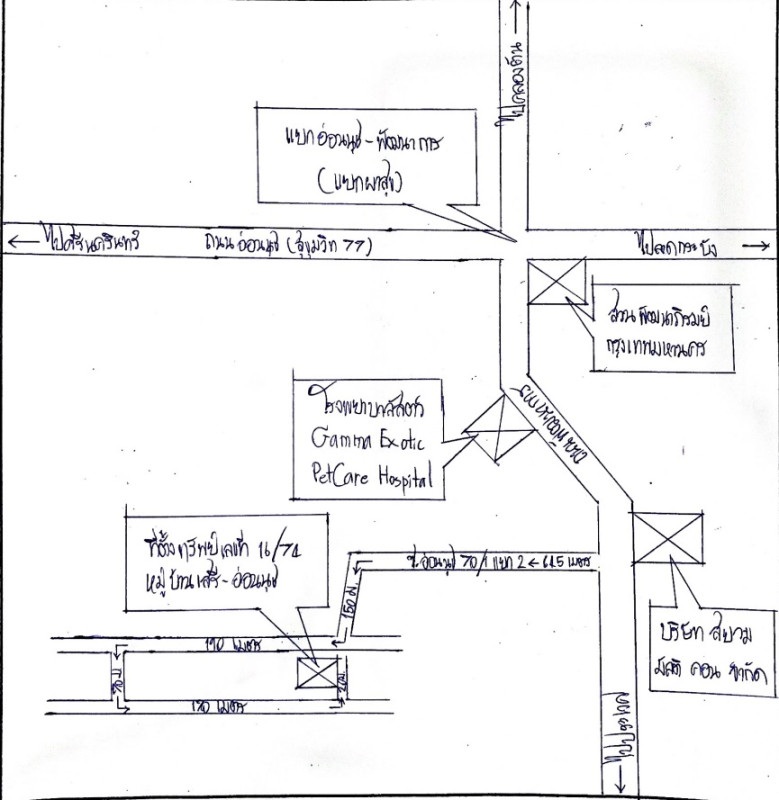 ไปคลองตัน
แยกอ่อนนุช - พัฒนาการ
(แยกผาสุข)
ไปศรีนครินทร์
ถนนอ่อนนุช (สุขุมวิท 77)
ไปลาดกระบัง
สวนพัฒนาภิรมย์
กรุงเทพมหานคร
โรงพยาบาลสัตว์
Gamma Exotic
PetCare Hospital
ที่ตั้งทรัพย์เลขที่ 16/74
หมู่บ้านเสรี - อ่อนนุช
ซ.อ่อนนุช 70/1 แยก 2 ← 615 เมตร
150 ม.
190 เมตร
190 เมตร
บริษัท สยาม
มัลติ คอน จำกัด
ไปประเวศ